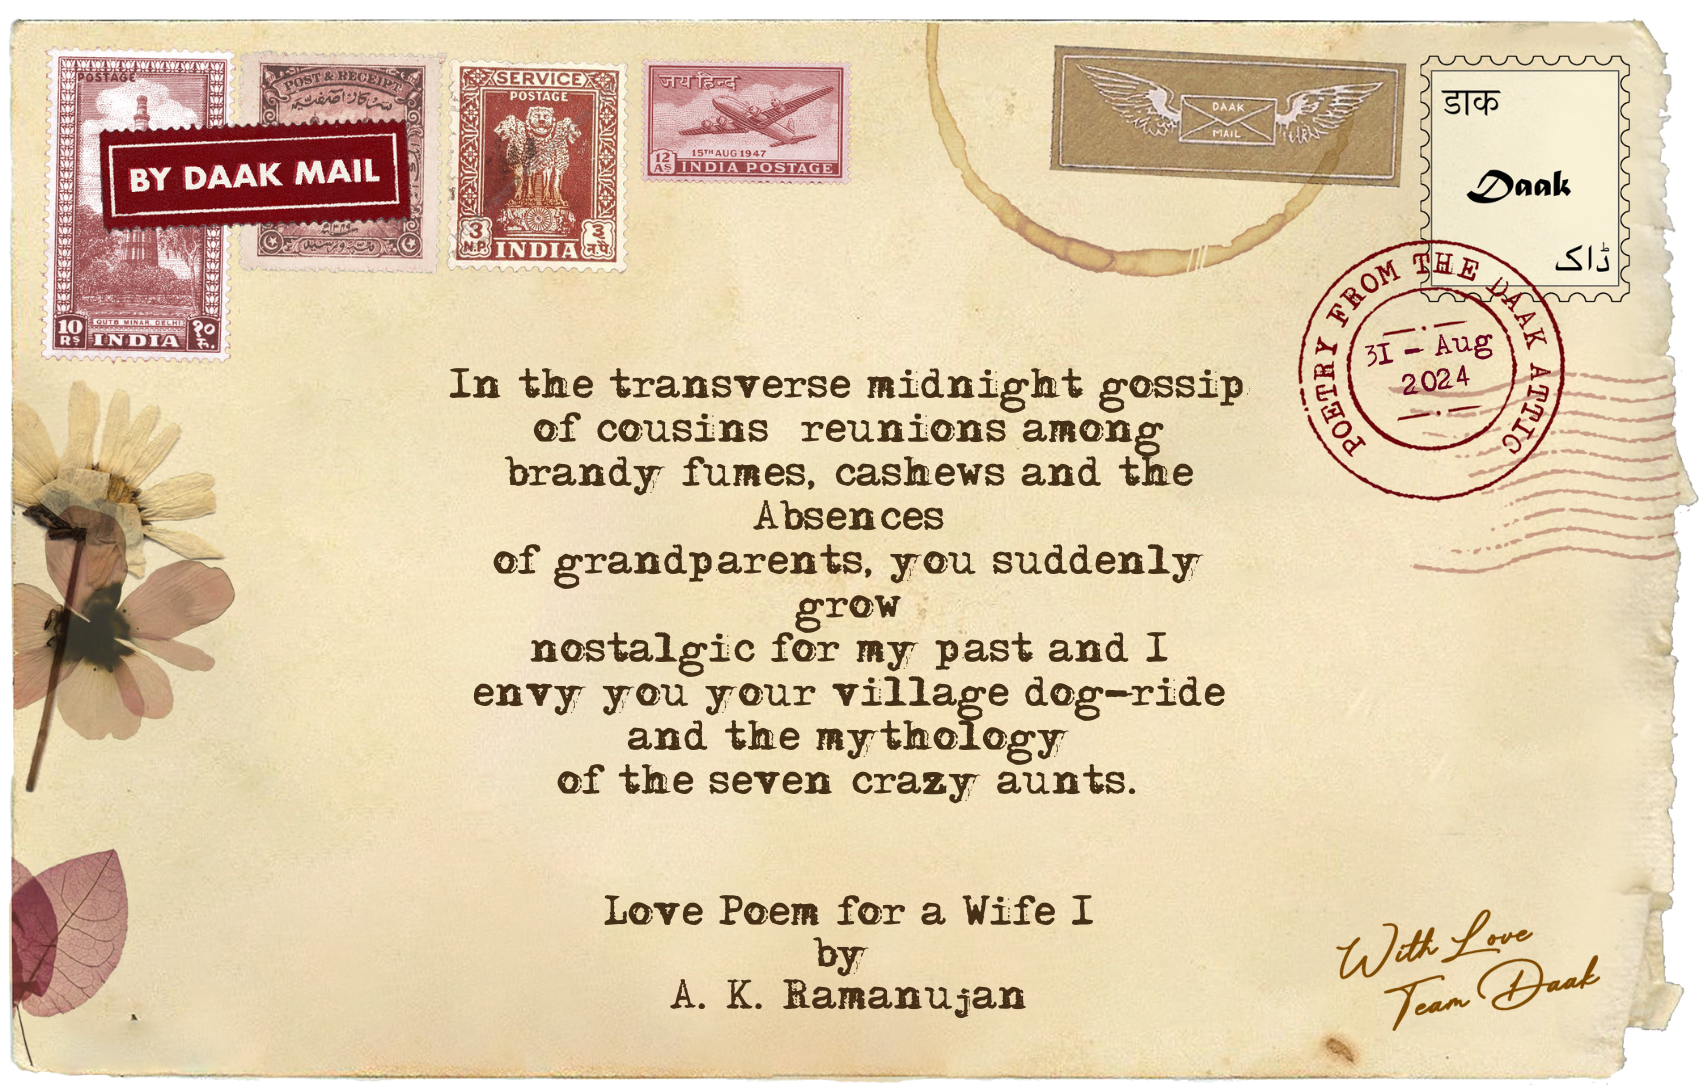 POSTAGE
10
RS
QUTB MINAR, DELHI
INDIA
१०
रु.
BY DAAK MAIL
POST & RECEIPT
SERVICE
POSTAGE
3
N.P.
INDIA
३
न.पै.
जय हिन्द
15TH AUG 1947
12
AS
INDIA POSTAGE
DAAK
MAIL
डाक
Daak
ڈاک
POETRY FROM THE DAAK ATTIC
31 - Aug
2024
In the transverse midnight gossip
of cousins reunions among
brandy fumes, cashews and the
Absences
of grandparents, you suddenly
grow
nostalgic for my past and I
envy you your village dog-ride
and the mythology
of the seven crazy aunts.
Love Poem for a Wife I
by
A. K. Ramanujan
With Love
Team Daak